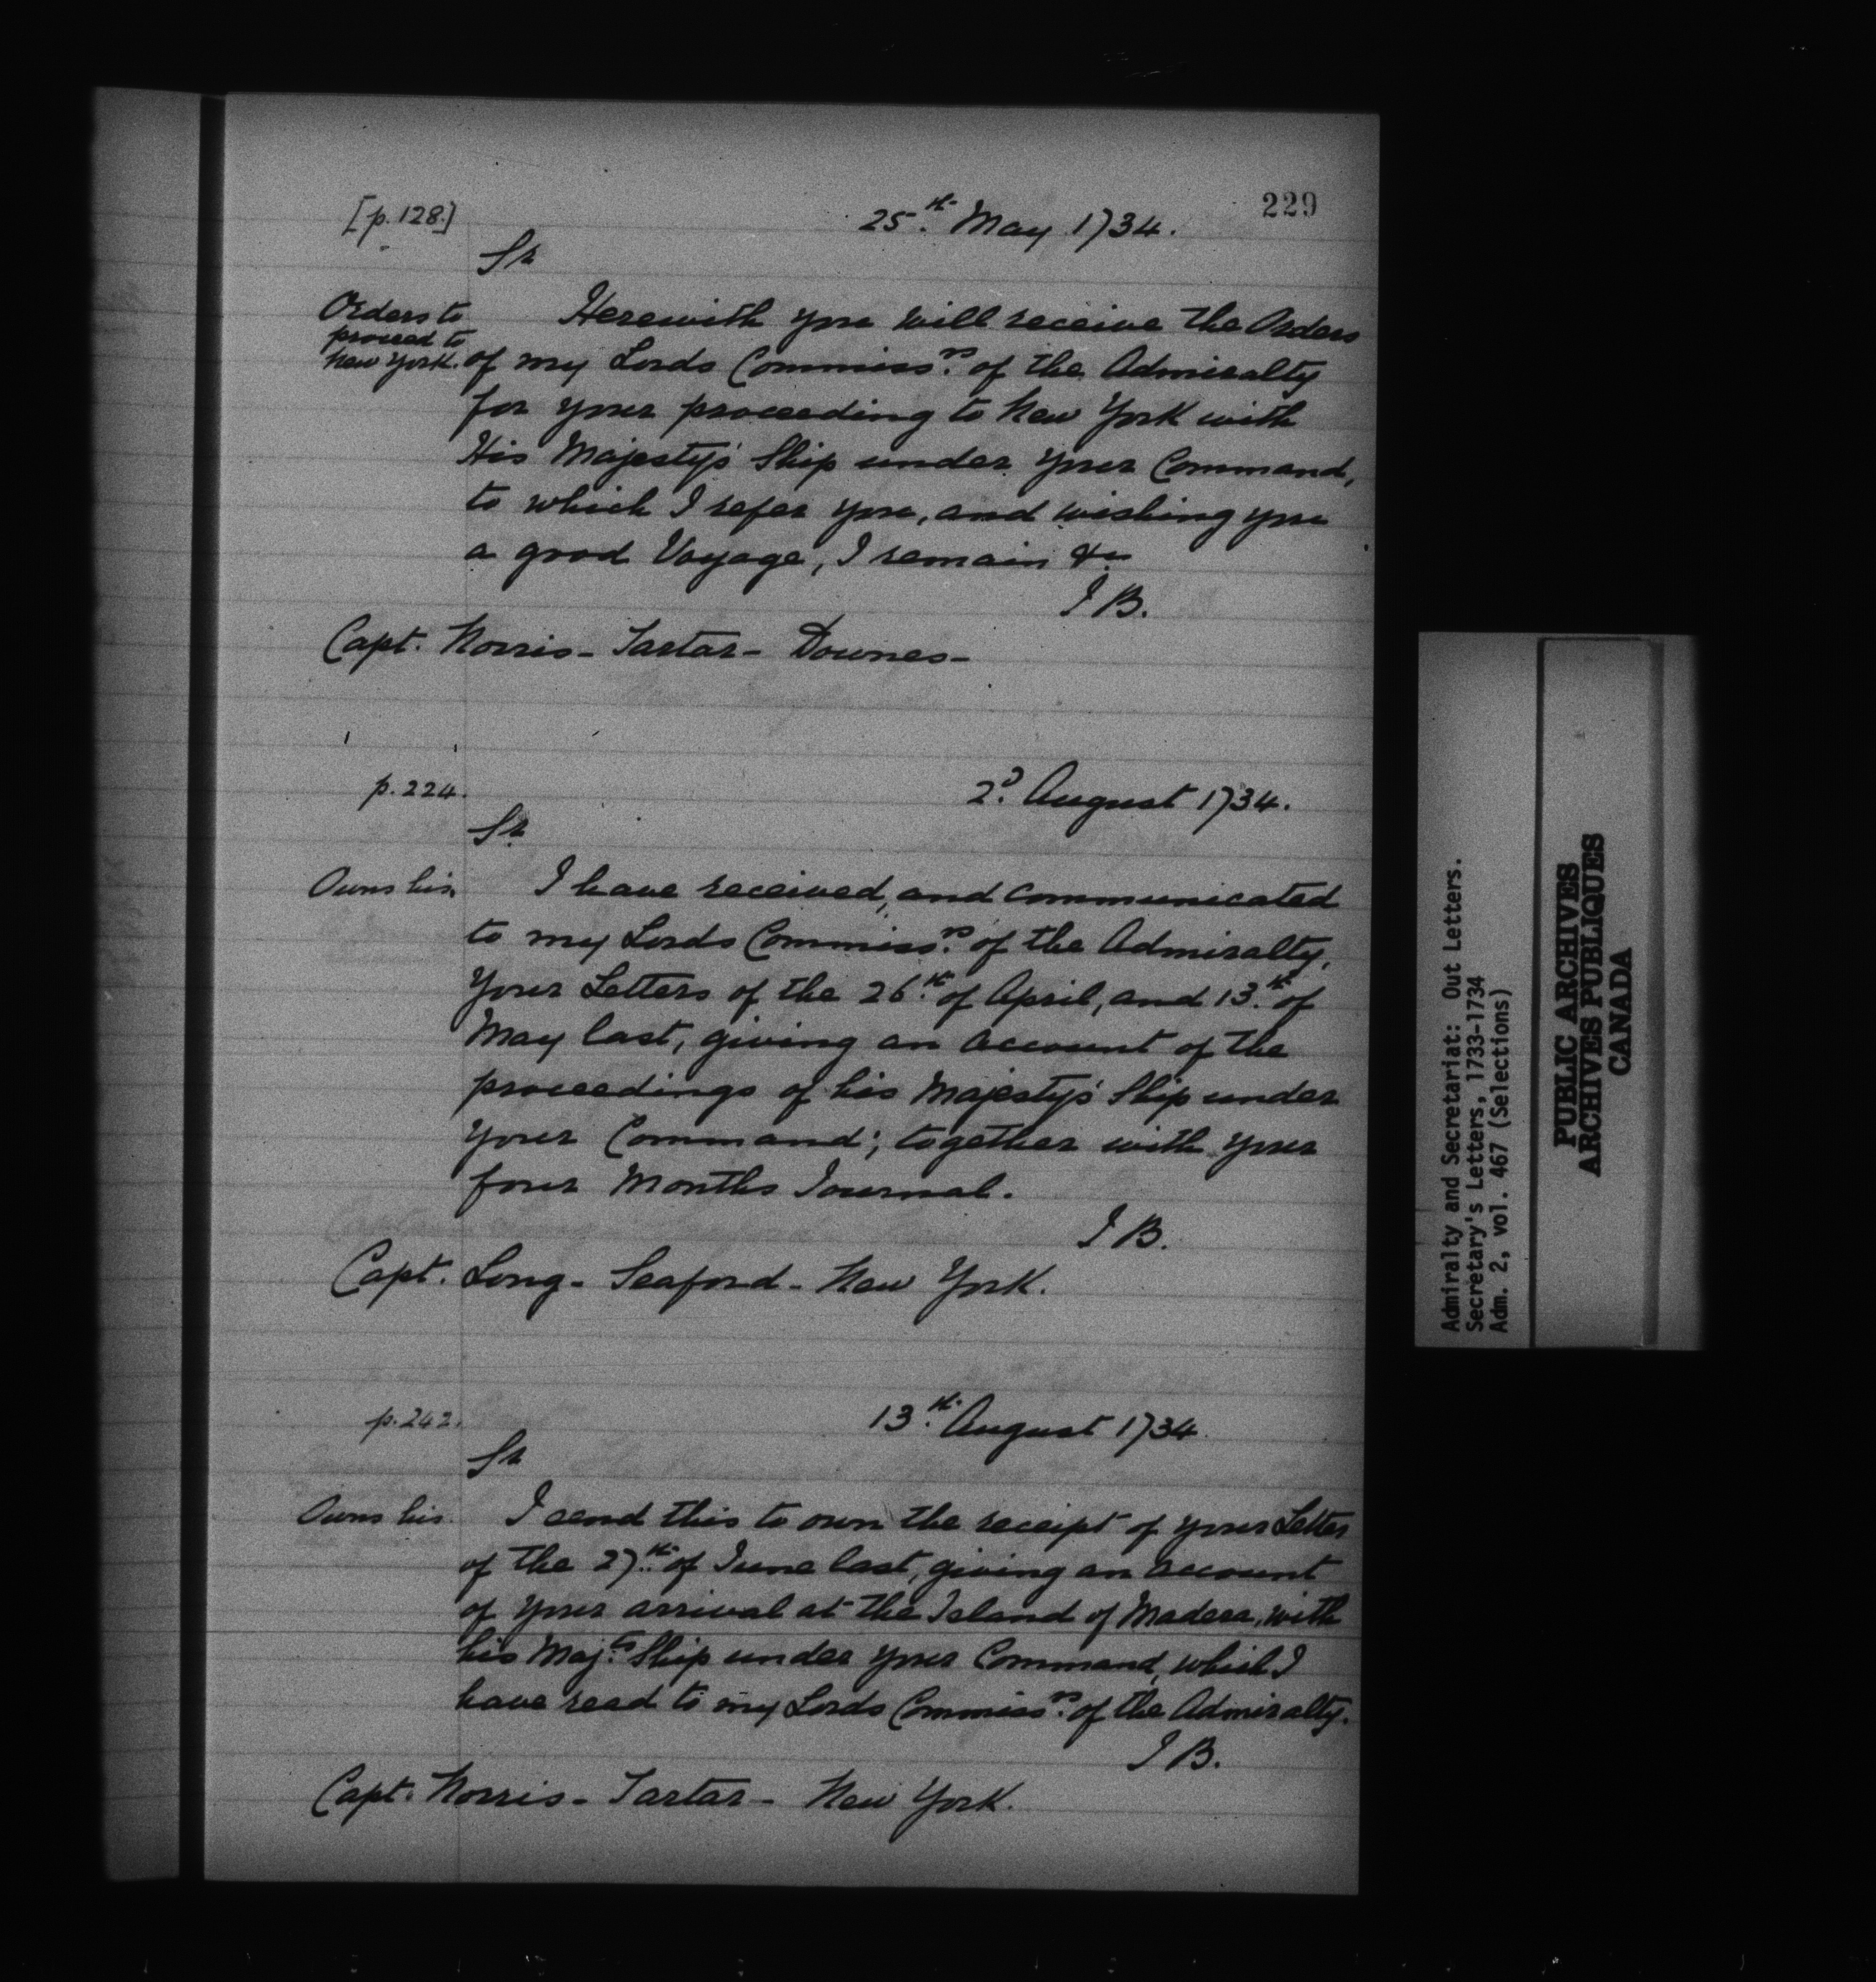 229
[p. 128.]
25th May 1734.
Sr
Orders to
proceed to
New York.
Herewith you will receive the Orders
of my Lords Commissrs of the Admiralty
for your proceeding to New York with
His Majesty's Ship under your Command,
to which I refer you, and wishing you
a good Voyage, I remain &c
J B.
Capt. Norris - Tartar - Downes -
p. 224.
2d August 1734.
Sr
Owns his.
I have received, and communicated
to my Lords Commissrs of the Admiralty,
Your Letters of the 26th of April, and 13th of
May last, giving an account of the
proceedings of his Majesty's Ship under
your Command; together with your
four Months Journal.
J B.
Capt. Long - Seaford - New York.
p. 242.
13th August 1734.
Sr
Owns his.
I send this to own the receipt of your Letter
of the 27th of June last, giving an account
of your arrival at the Island of Madera, with
his Maj.ts Ship under your Command, which I
have read to my Lords Commissrs of the Admiralty.
J B.
Capt. Norris - Tartar - New York.
Admiralty and Secretariat: Out Letters.
Secretary's Letters, 1733-1734
Adm. 2, vol. 467 (Selections)
PUBLIC ARCHIVES
ARCHIVES PUBLIQUES
CANADA